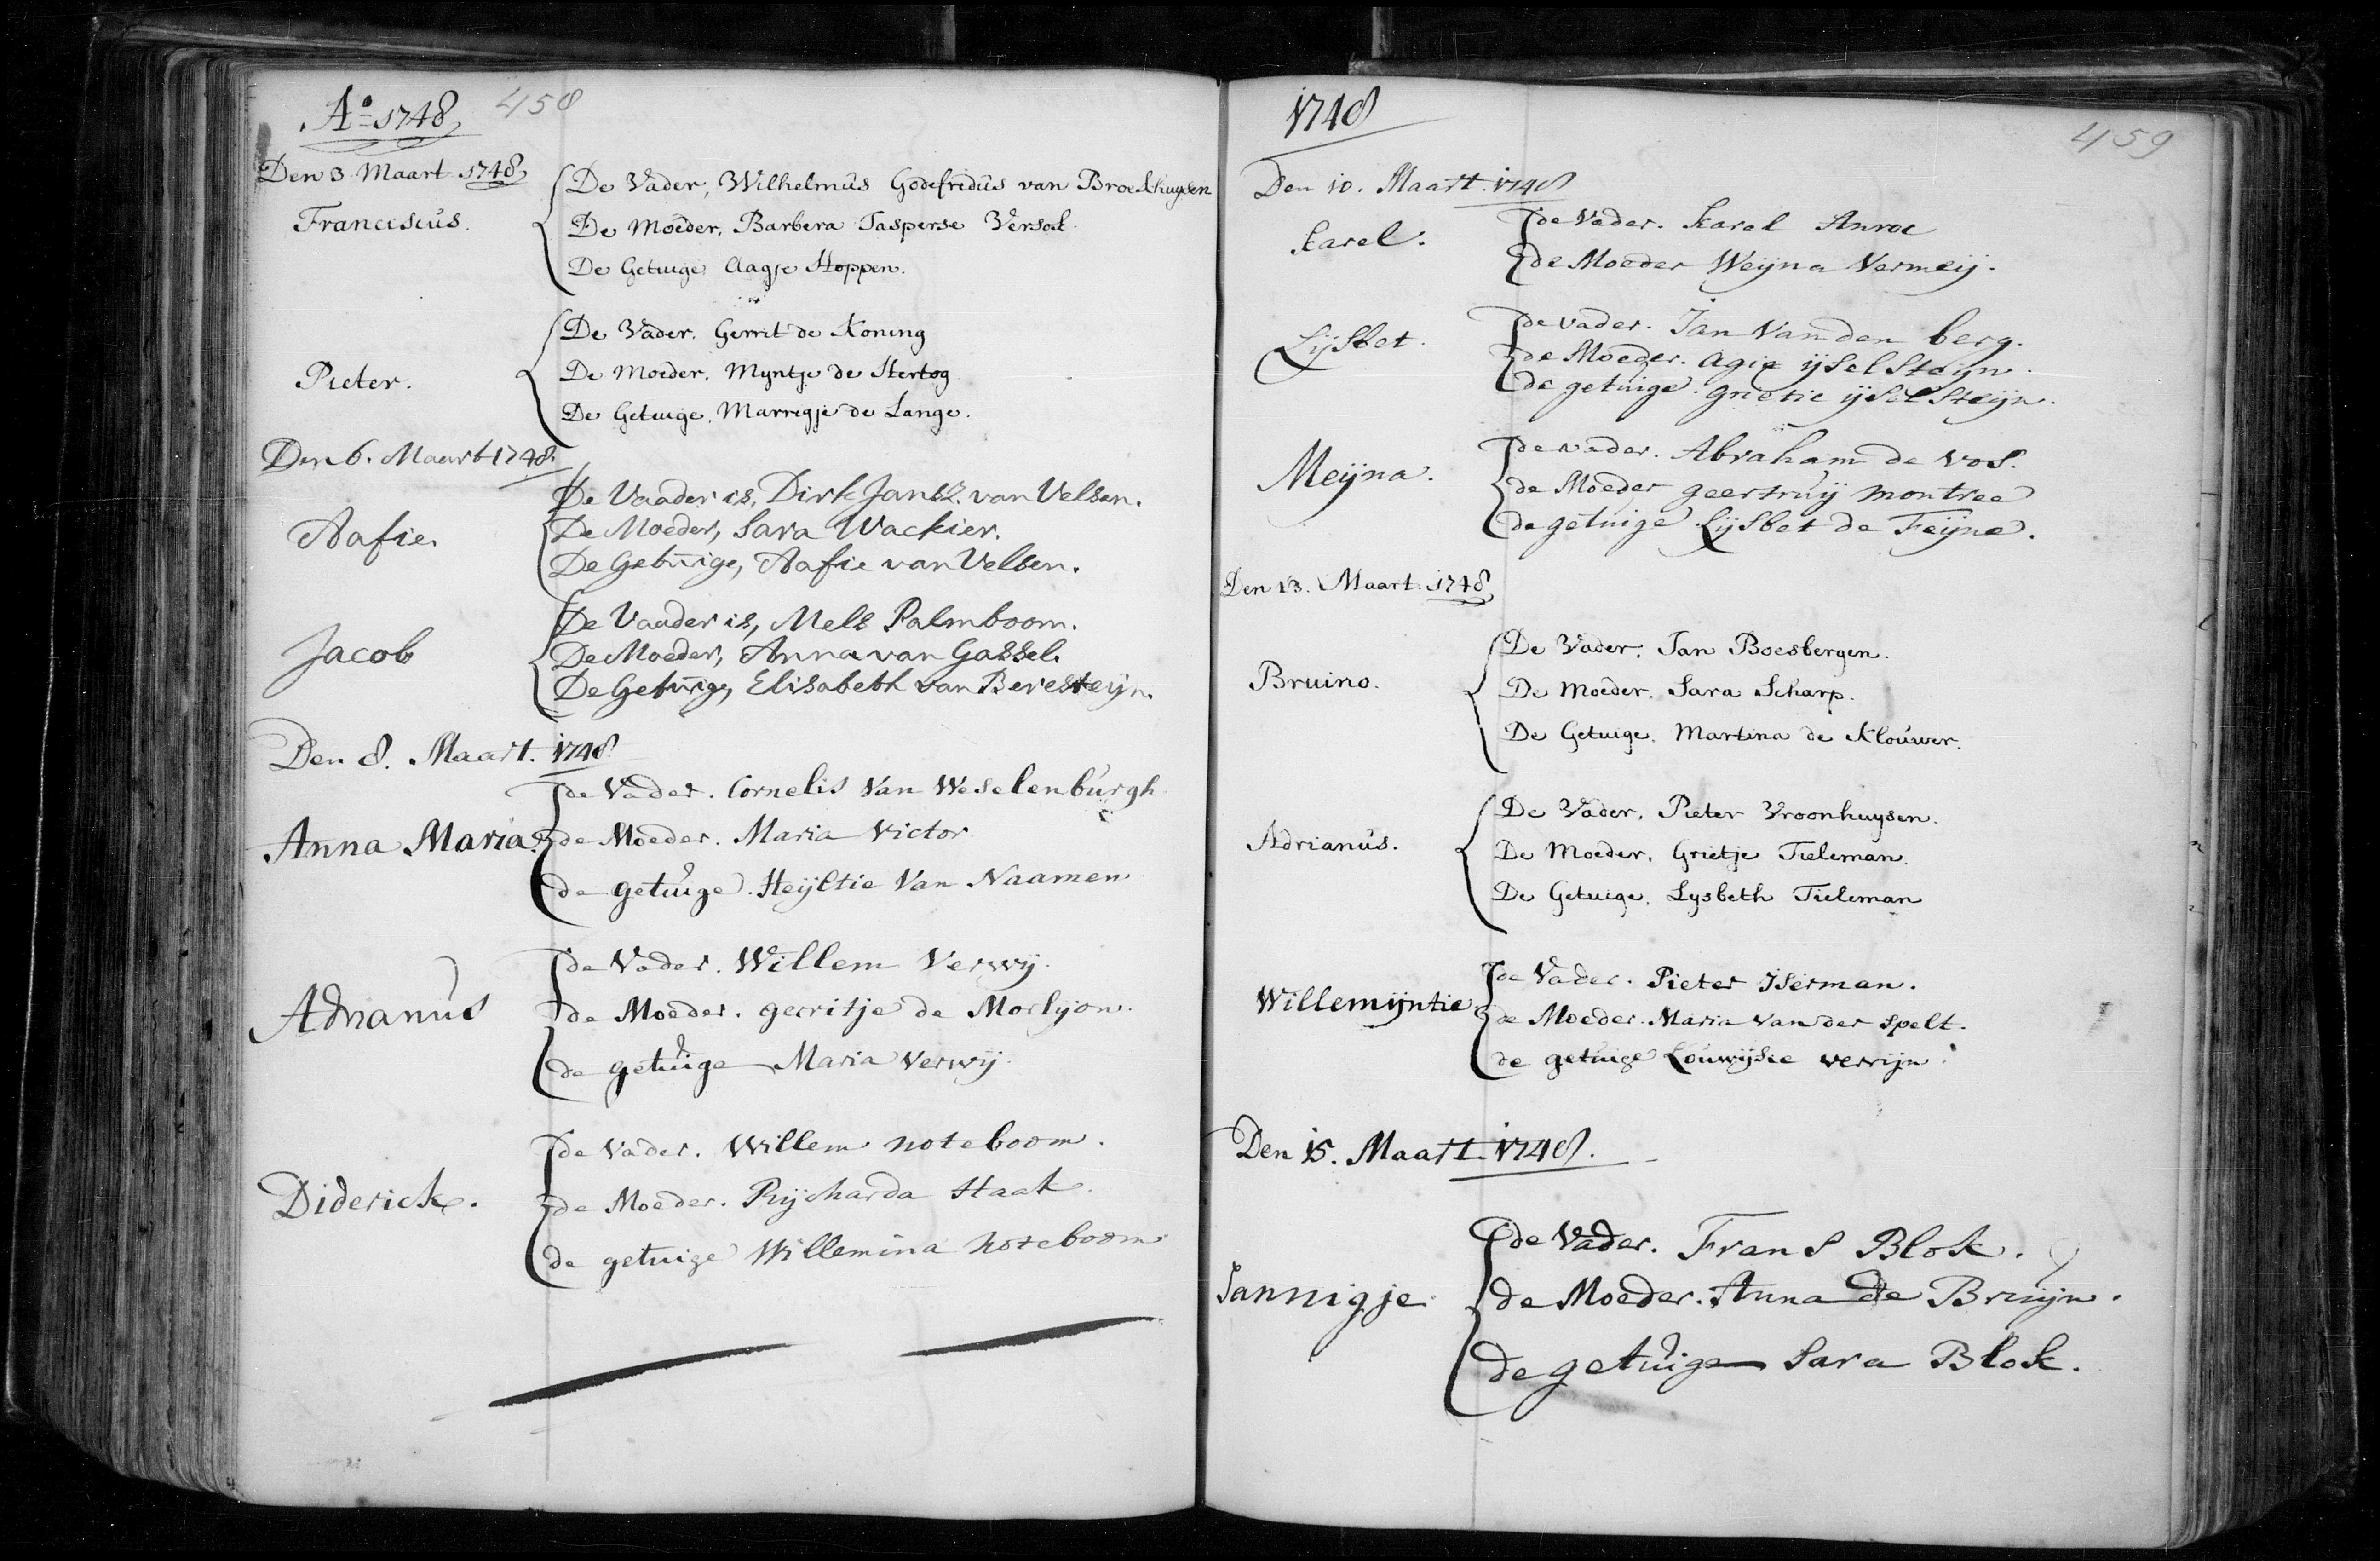 Ao 1748 458
Den 3 Maart 1748
Franciscus.
De Vader, Wilhelmus Godefredus van Broekhuysen
De Moeder, Barbera Jasperse Versol.
De Getuige Aagje Hoppen.
Pieter.
De Vader. Gerrit de Koning
De Moeder, Myntje de Hertog
De Getuige, Marregje de Lange.
Den 6. Maart 1748.
Aafie.
De Vaader is, Dirk Jansz. van Velsen.
De Moeder, Sara Wackier.
De Getuige, Aafie van Velsen.
Jacob
De Vaader is, Mels Palmboom.
De Moeder, Anna van Gassel.
De Getuige, Elisabeth van Beresteijn.
Den 8. Maart. 1748
Anna Maria.
de Vader. Cornelis Van Weselenburgh
de Moeder. Maria Victor
de getuige. Heijltie Van Naamen
Adrianus
de Vader. Willem Verwij.
de Moeder. gerritje de Morlijon.
de getuige Maria Verwij.
Diderick.
de Vader. Willem noteboom.
de Moeder. Rijcharda Haak.
de getuige Willemina noteboom.
1748 459
Den 10. Maart. 1748
Karel.
de Vader. Karel Anroe
de Moeder Weijna Vermeij.
Lijsbet.
de vader. Jan Van den berg.
de Moeder. Agie ijselsteijn.
de getuige. grietie ijselsteijn.
Meijna.
de vader. Abraham de vos.
de Moeder geertruij montree
de getuige Lijsbet de Feijne.
Den 13. Maart. 1748
Bruino.
De Vader, Jan Boesbergen.
De Moeder, Sara Scharp.
De Getuige, Martina de Klouwer.
Adrianus.
De Vader, Pieter Vroonhuysen.
De Moeder, Grietje Tieleman.
De Getuige, Lysbeth Tieleman
Willemijntie
de Vader. Pieter IJserman.
de Moeder. Maria van der spelt.
de getuige Louwijsie verrijn.
Den 15. Maart 1748.
Jannigje
de Vader. Frans Blok.
de Moeder. Anna de Bruijn.
de getuige Sara Blok.